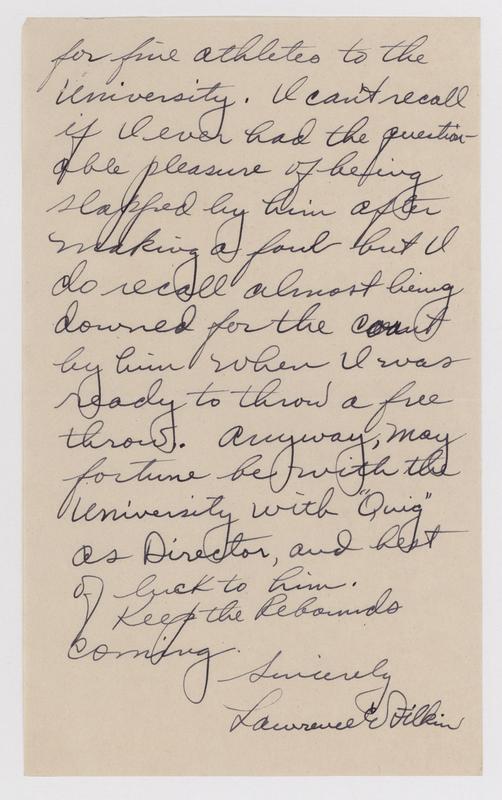 for fine athletes to the
University. I can't recall
if I ever had the question-
able pleasure of being
slapped by him after
making a foul but I
do recall almost being
downed for the count
by him when I was
ready to throw a free
throw. Anyway, may
fortune be with the
University with "Quig"
as Director, and best
of luck to him.
Keep the Rebounds
coming.
Sincerely
Lawrence E Filkin